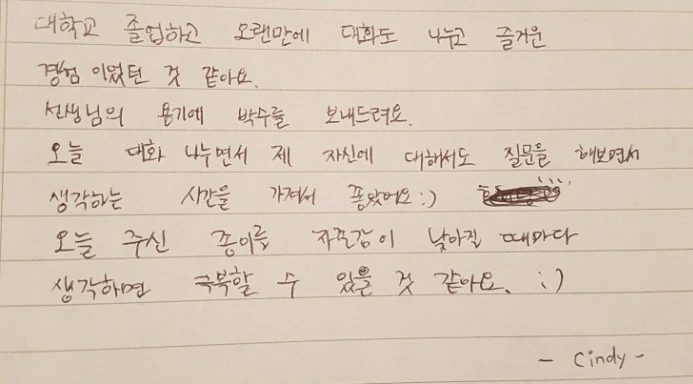 대학교 졸업하고 오랜만에 대화도 나누고 즐거운
경험 이었던 것 같아요.
선생님의 용기에 박수를 보내드려요.
오늘 대화 나누면서 제 자신에 대해서도 질문을 해보면서
생각하는 시간을 가져서 좋았어요 :)
오늘 주신 종이를 자존감이 낮아질 때마다
생각하면 극복할 수 있을 것 같아요. :)
- Cindy -